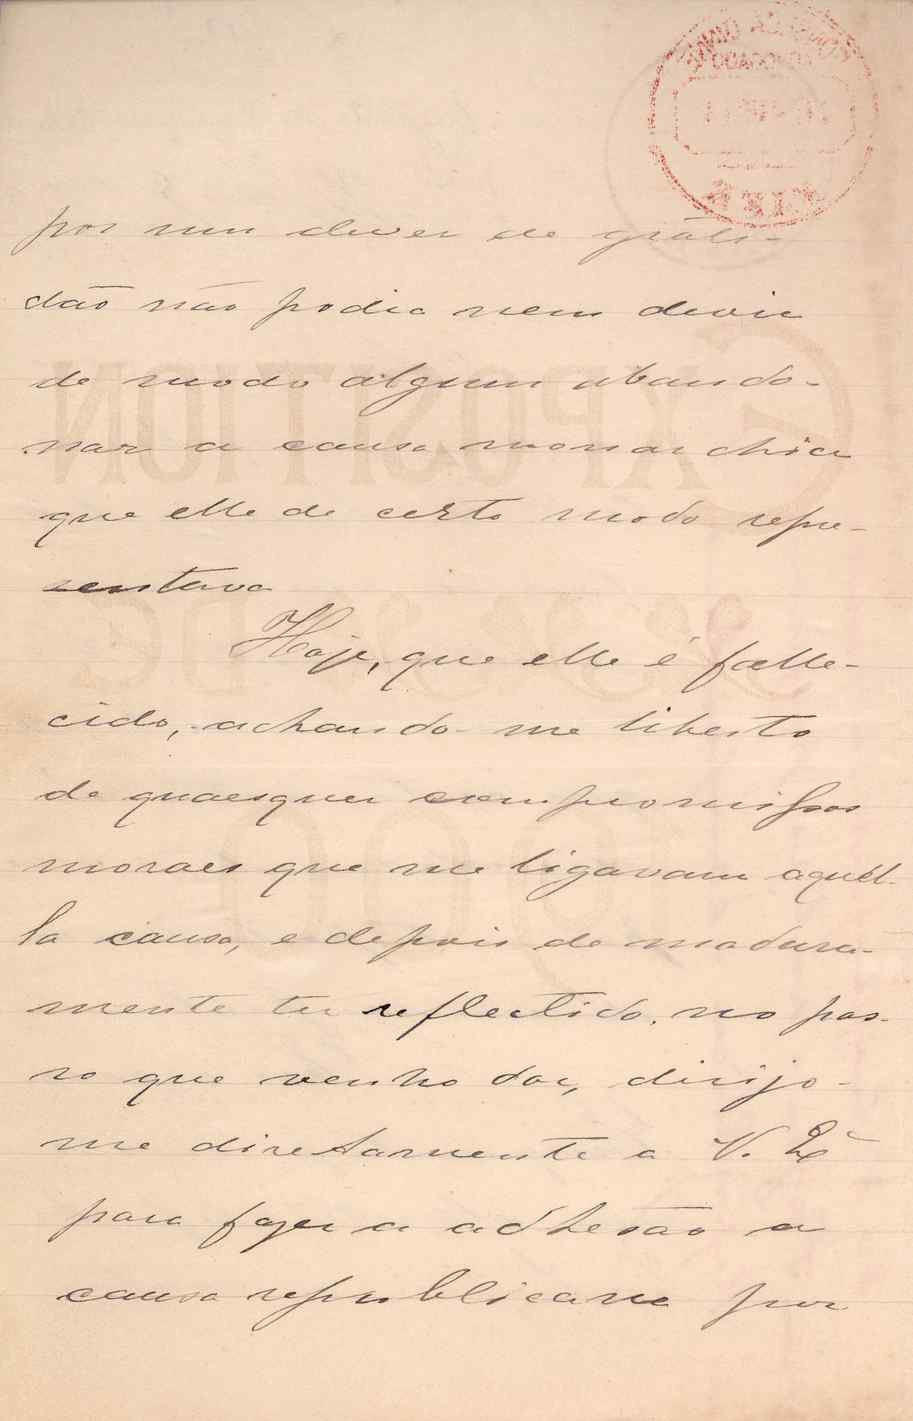 por um dever de grati-
dão não podia nem devia
de modo algum abando-
nar a causa monarchica
que elle de certo modo repre-
sentava
Hoje, que elle é falle-
cido, achando-me liberto
de quaesquer compromissos
moraes que me ligavam aquel-
la causa, e depois de madura-
mente ter reflectido, no pas-
so que venho dar, dirijo-
me diretamente a V. Exª
para fazer a adhesão a
causa republicana por
EXPOSITION
DE
1900